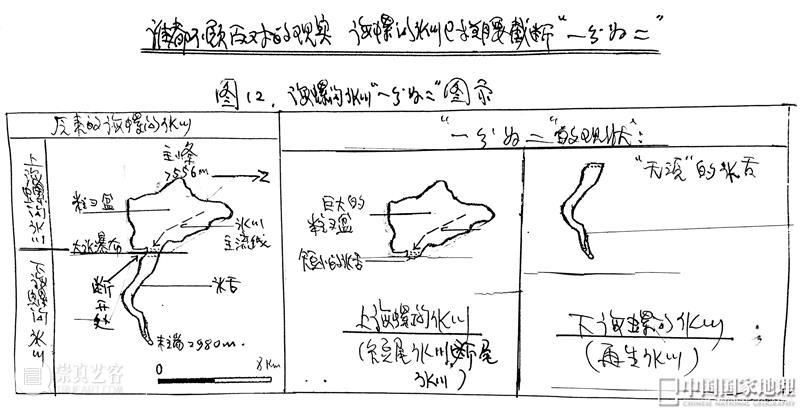 谁都不愿面对的现实 海螺沟冰川已被拦腰截断“一分为二”
图12.海螺沟冰川“一分为二”图示
原来的海螺沟冰川
“一分为二”的现状:
上海螺沟冰川
下海螺沟冰川
主峰
7556m
Z
粒雪盆
冰川
主流线
大冰瀑布
断
开
处
冰舌
末端2980m.
0
8Km
巨大的
粒雪盆
短小的冰舌
上海螺沟冰川
(短尾冰川,断尾
冰川)
“无源”的冰舌
下海螺沟冰川
(再生冰川)
崇真艺客
中国国家地理
CHINESE NATIONAL GEOGRAPHY